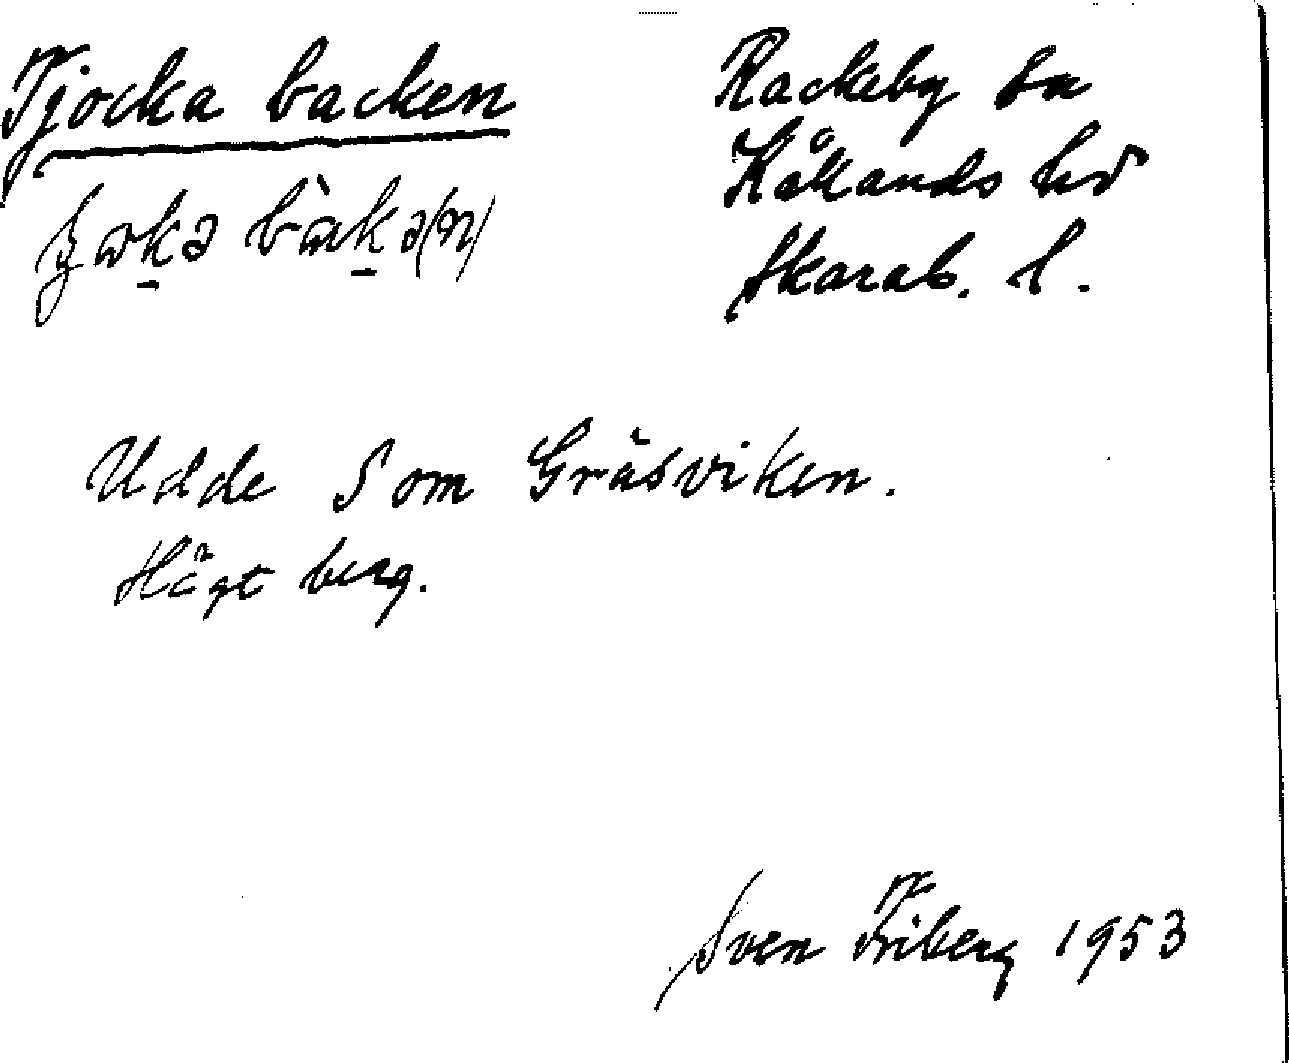 Tjocka backen
Rackeby sn
Kålands hd
Skarab. l.
Udde S om Gräsviken.
Högt berg.
Sven Friberg 1953